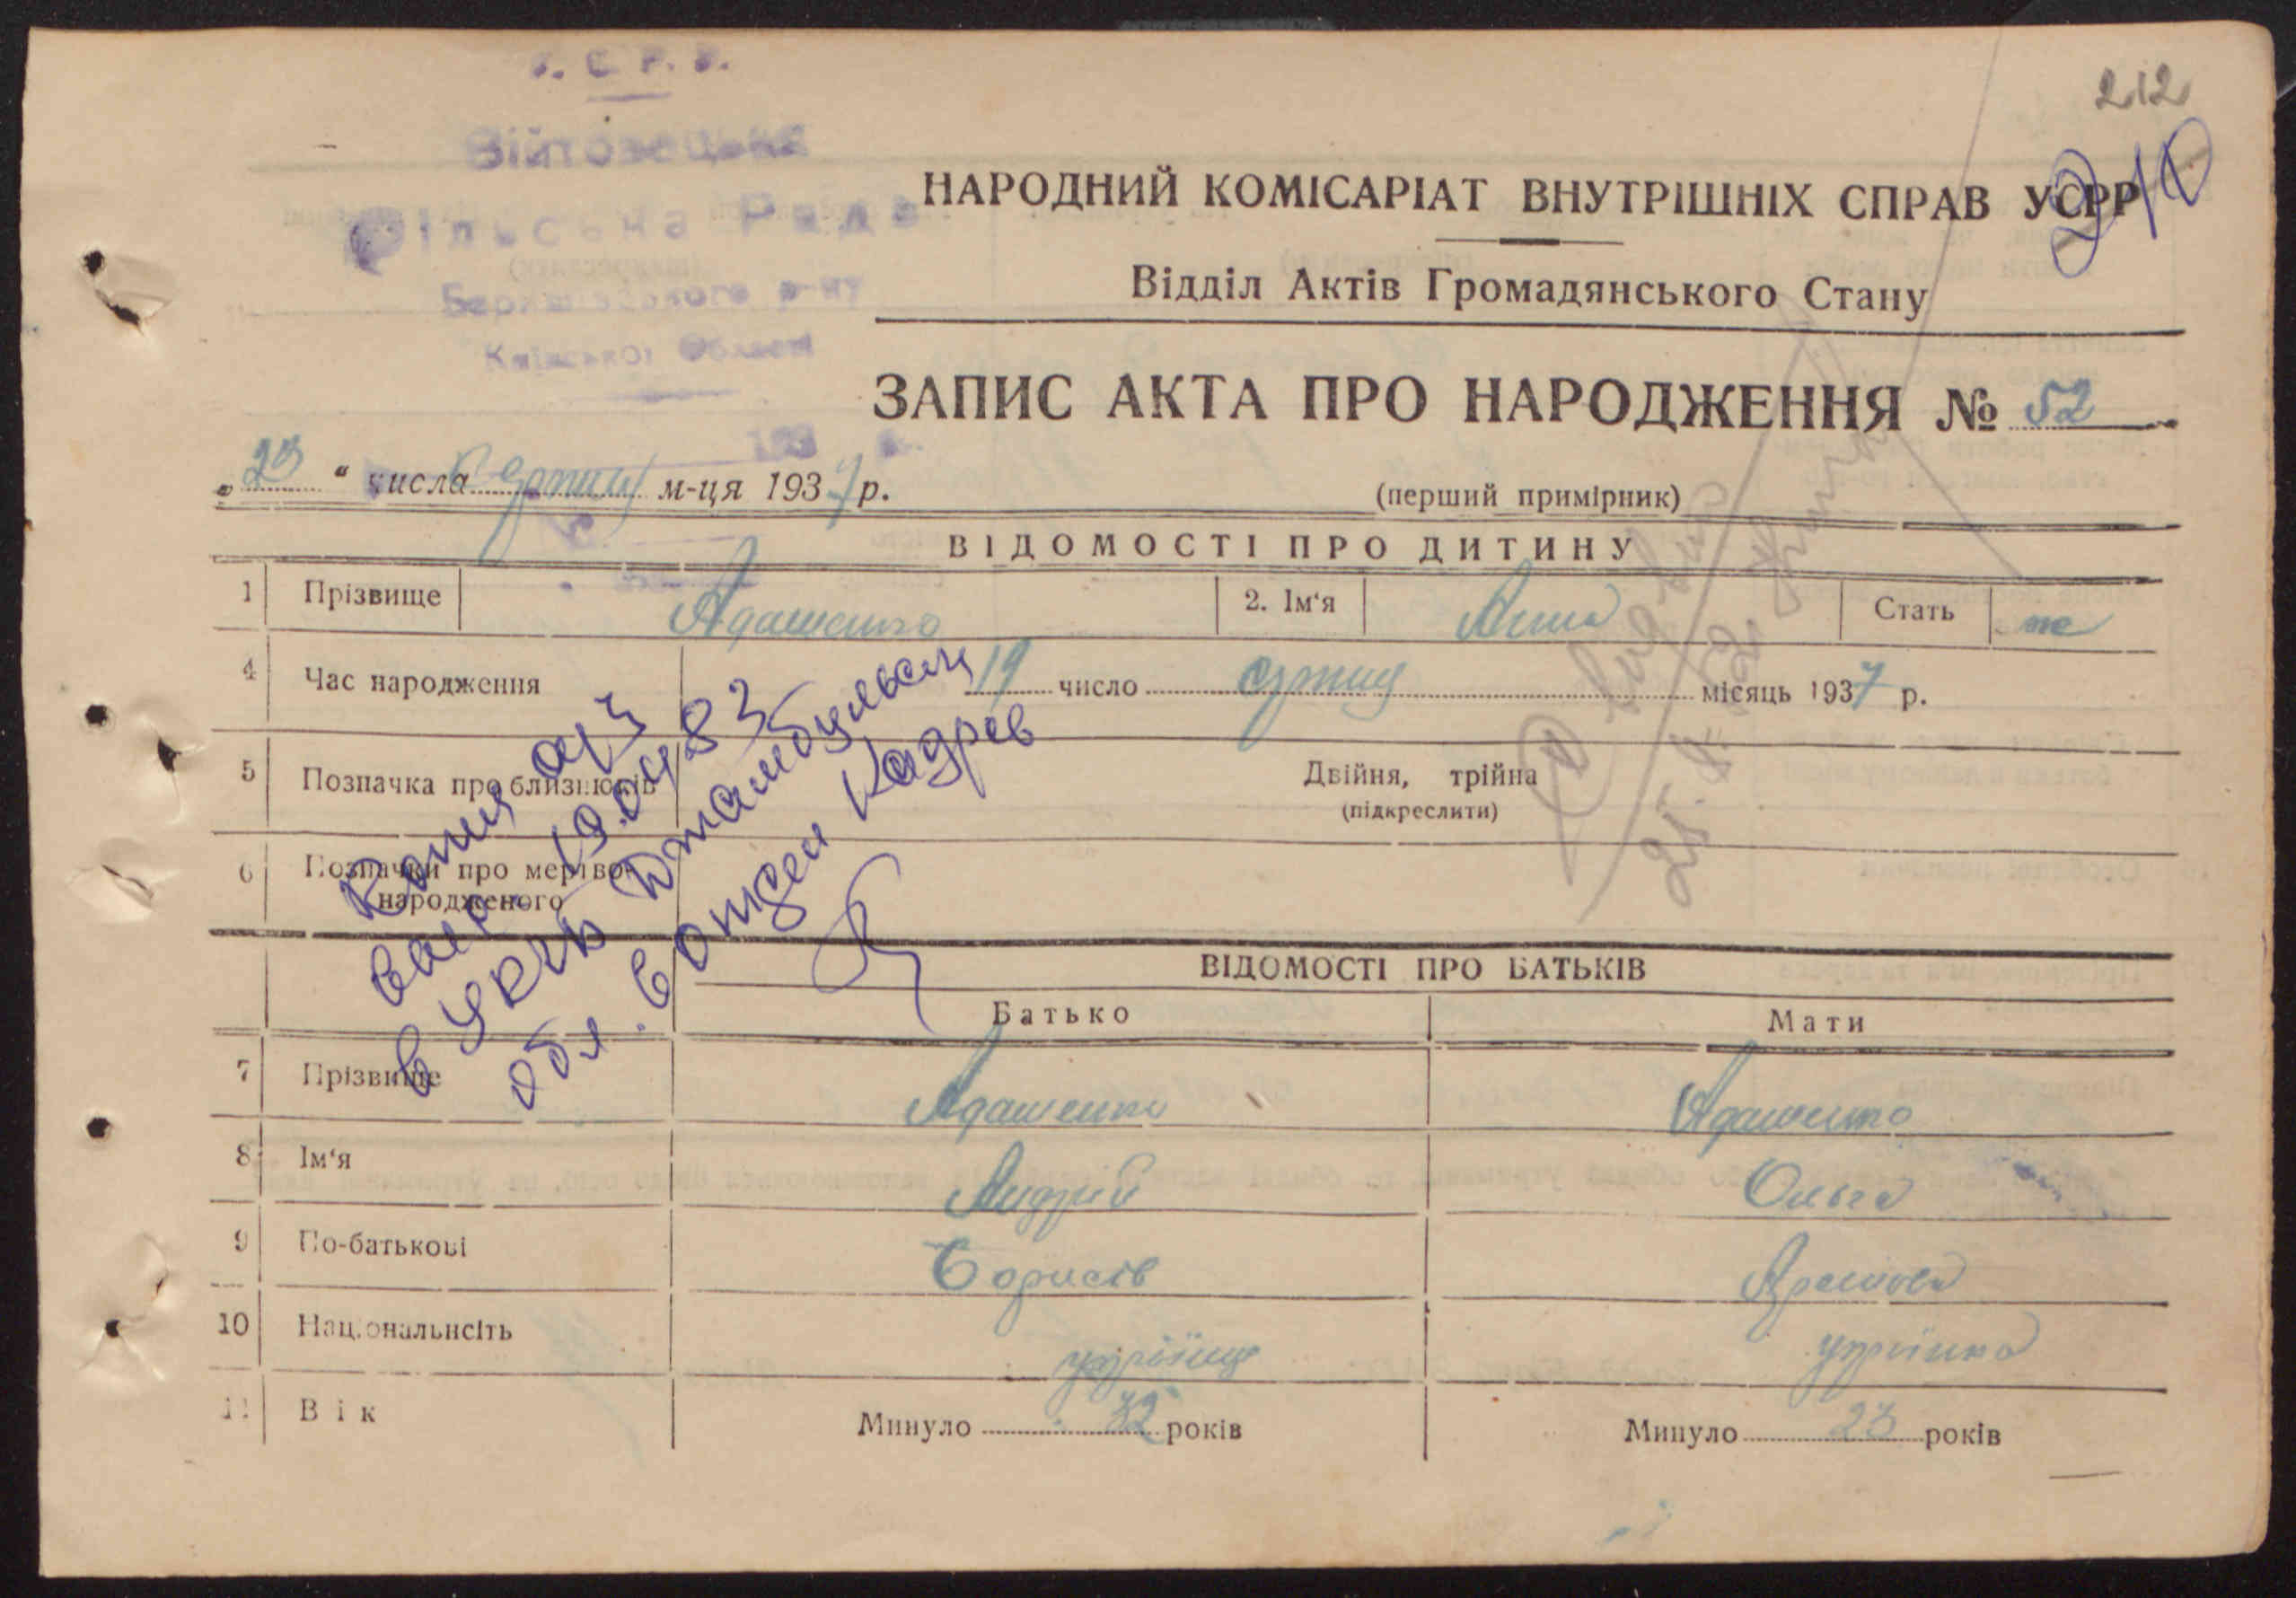 У. С. Р. Р.
Війтовецька
Сільська Рада
Баришівського р-ну
Київської Області
193 р.
212
210
НАРОДНИЙ КОМІСАРІАТ ВНУТРІШНІХ СПРАВ УСРР
Відділ Актів Громадянського Стану
ЗАПИС АКТА ПРО НАРОДЖЕННЯ № 52
„23“ числа Серпня м-ця 1937 р.
(перший примірник)
ВІДОМОСТІ ПРО ДИТИНУ
1 Прізвище Адашенко 2. Ім‘я Анна Стать же
4 Час народження 19 число серпня місяць 1937 р.
5 Позначка про близнюків Двійня, трійна
(підкреслити)
6 Позначки про мертво-
народженого
Копия а/з
19.04.83
в УКГБ Джамбульской
обл. в отдел кадров
ВІДОМОСТІ ПРО БАТЬКІВ
Батько Мати
7 Прізвище Адашенко Адашенко
8 Ім‘я Андрій Ольга
9 По-батькові Борисів
10 Національнсіть українець українка
11 Вік Минуло 32 років Минуло 23 років